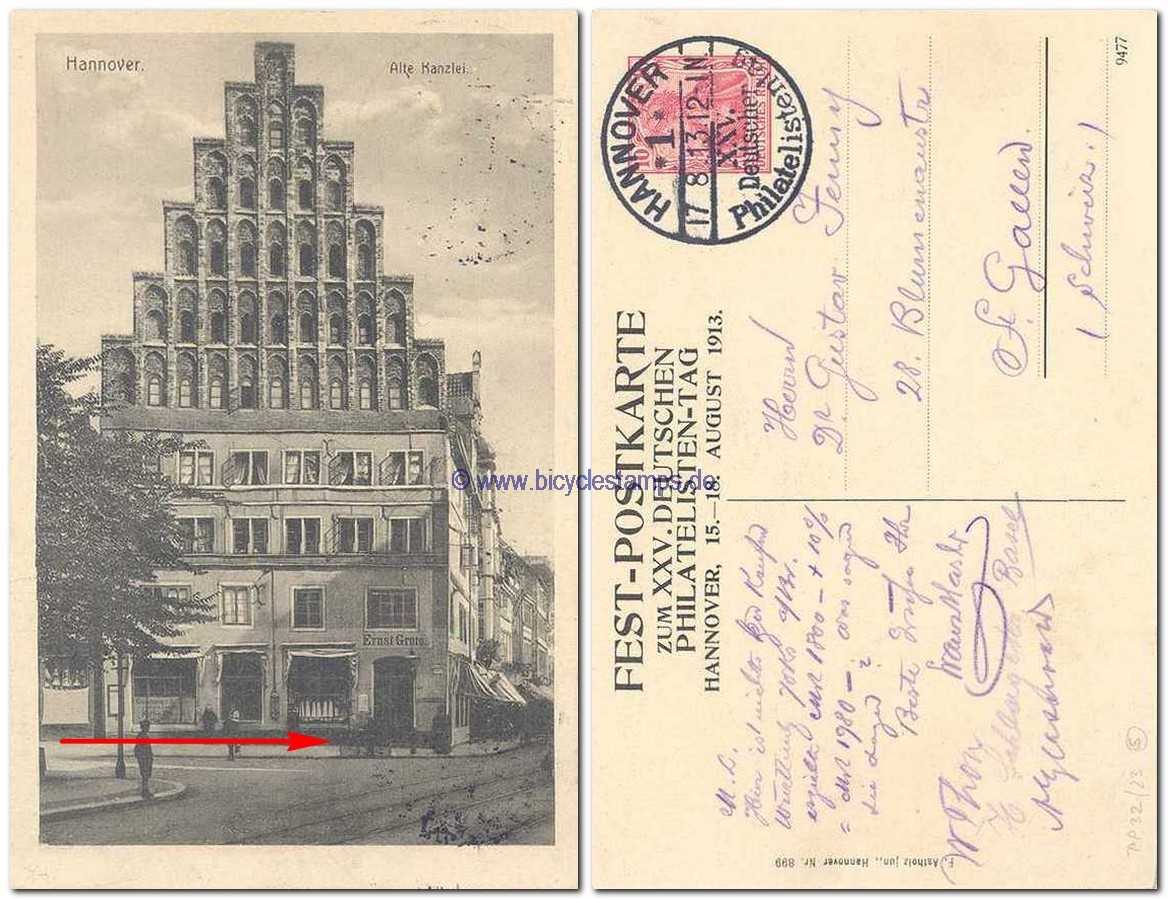 Hannover. Alte Kanzlei.
Ernst Grote.
© www.bicyclestamps.de
HANNOVER
* 1 *
17.8.13.12-1N.
XXV.
Deutscher
Philatelistentag
9477
FEST-POSTKARTE
ZUM XXV. DEUTSCHEN
PHILATELISTEN-TAG
HANNOVER, 15.—18. AUGUST 1913.
Herrn
Dr. Gustav Jenny
28. Blumenaustr.
St. Gallen
(Schweiz.)
M. L.
Hier ist nichts
erzielte Mk 1800 — + 10%
= Mk 1980 — was sagen
Sie dazu?
Beste Grüße Ihr
Basel
F. Astholz jun., Hannover Nr. 899
PP 32/23
5